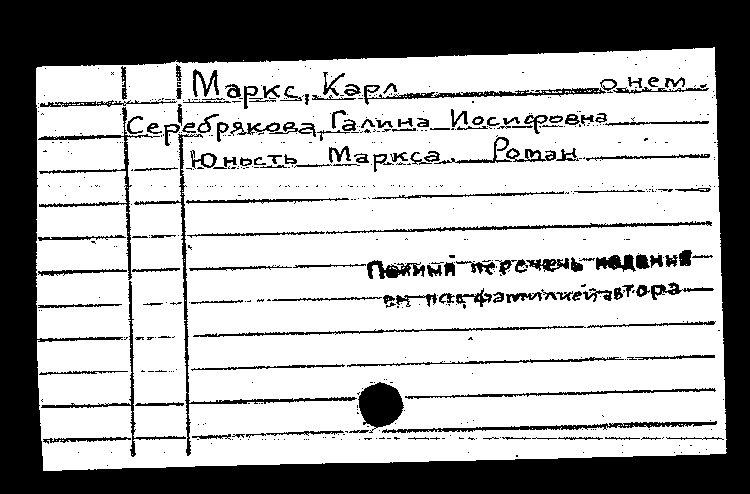 Маркс, Карл о нем.
Серебрякова, Галина Иосифовна
Юность Маркса. Роман
Полный перечень изданий
см под фамилией автора